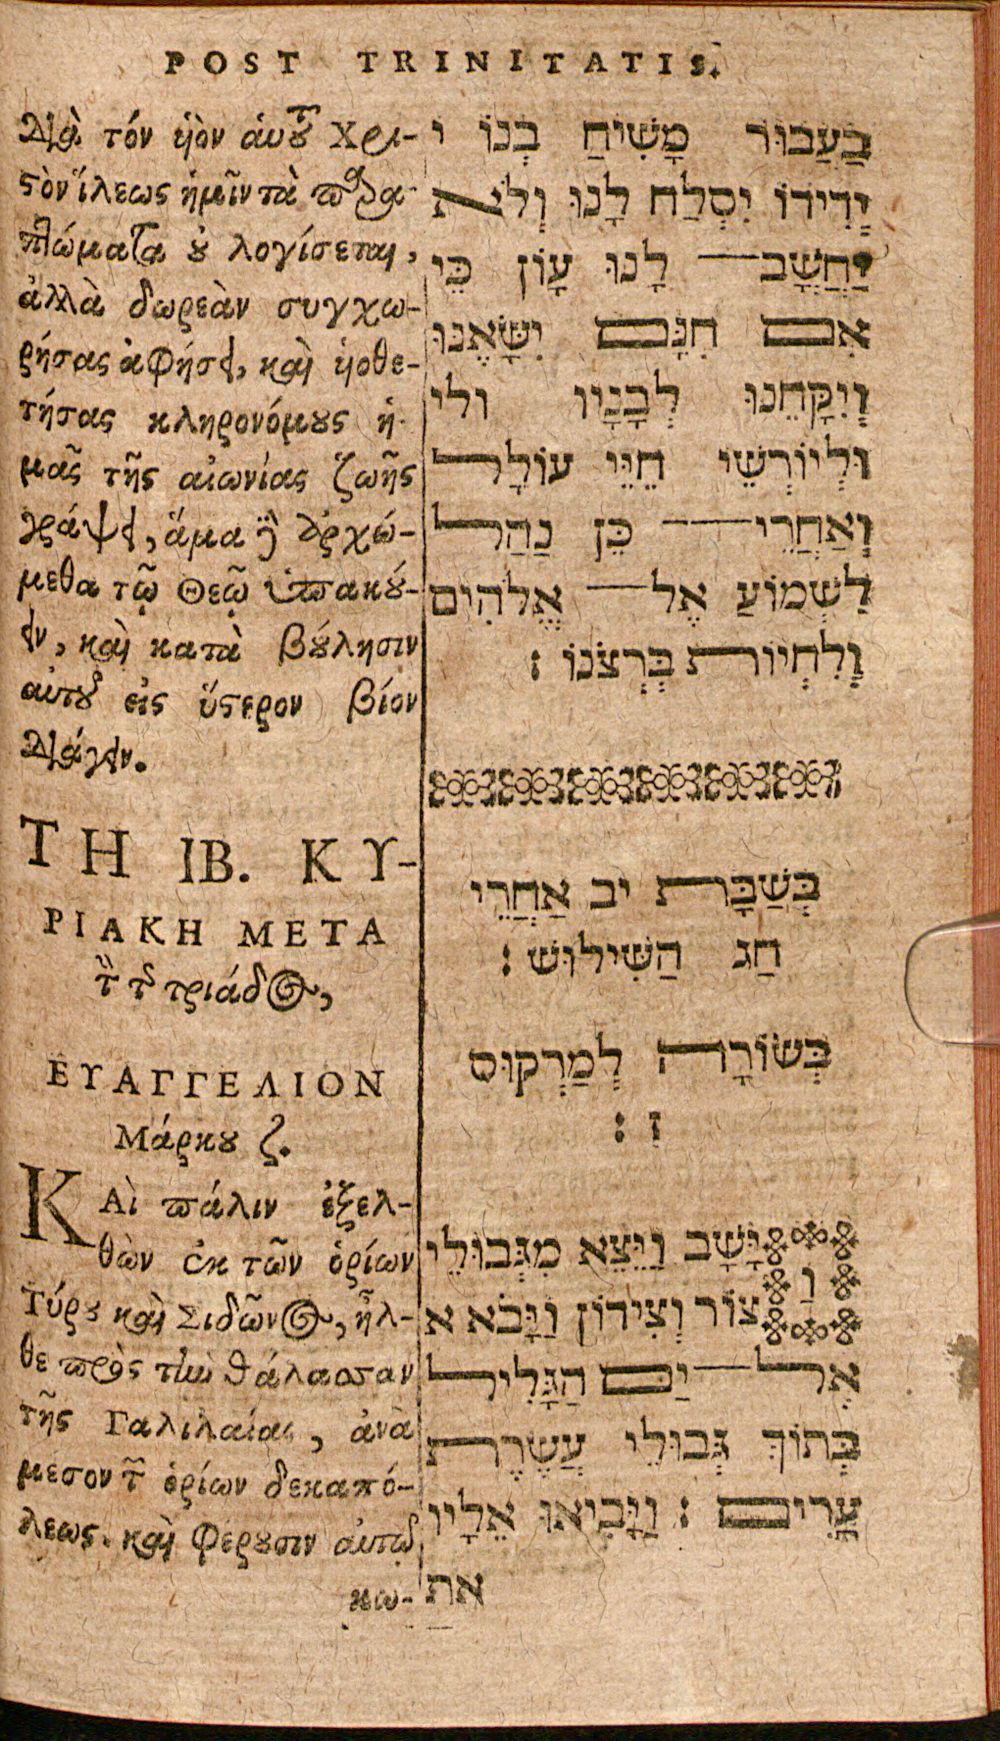 POST TRINITATIS.
Διὰ τόν ὑὸν ἀυτοῦ Χρι-
στὸν ἵλεως ἡμῖν τὰ παρα-
πτώματα οὐ λογίσεται,
ἀλλὰ δωρεὰν συγχω-
ρήσας ἀφήσει, καὶ ὑοθε-
τήσας κληρονόμους ἡ-
μᾶς τῆς αἰωνίας ζωῆς
γράψει, ἅμα
μεθα τῷ Θεῷ ὑπακού-
ειν, καὶ κατὰ βούλησιν
αὐτοῦ εἰς ὕστερον βίον
διάγειν.
ΤΗ ΙΒ. ΚΥ-
ΡΙΑΚΗ ΜΕΤΑ
τριάδος,
ΕΥΑΓΓΕΛΙΟΝ
Μάρκου ζ.
ΚΑὶ πάλιν ἐξελ-
θὼν ἐκ τῶν ὁρίων
Τύρου καὶ Σιδῶνος, ἦλ-
θε πρὸς τὴν θάλασσαν
τῆς Γαλιλαίας, ἀνὰ
μέσον τῶν ὁρίων δεκαπό-
λεως. καὶ φέρουσιν αὐτῷ
κω-
בַּעֲבוּר מָשִׁיחַ בְּנוֹ י
יְדִידוֹ יִסְלַח לָנוּ וְלֹא
יַחֲשָׁב לָנוּ עָוֹן כִּי
אִם חִנָּם יִשָּׂאֶנּוּ
וְיִקָּחֵנוּ לְבָנָיו ולי
וּלְיוֹרְשֵׁי חַיֵּי עוֹלָם
וְאַחֲרֵי כֵּן נַהַל
לִשְׁמוֹעַ אֶל אֱלֹהִים
וְלִחְיוֹת בִּרְצֹנוֹ :
בְּשַׁבָּת יב אַחֲרֵי
חַג הַשִּׁילוּשׁ :
בְּשׂוֹרָה לְמַרְקוּס
ז :
וַיָּשָׁב וַיֵּצֵא מִגְּבוּלֵי
צוֹר וְצִידוֹן וַיָּבֹא א
אֶל יַם הַגָּלִיל
בְּתוֹךְ גְּבוּלֵי עֲשֶׂרֶת
עָרִים : וַיָּבִיאוּ אֵלָיו
את